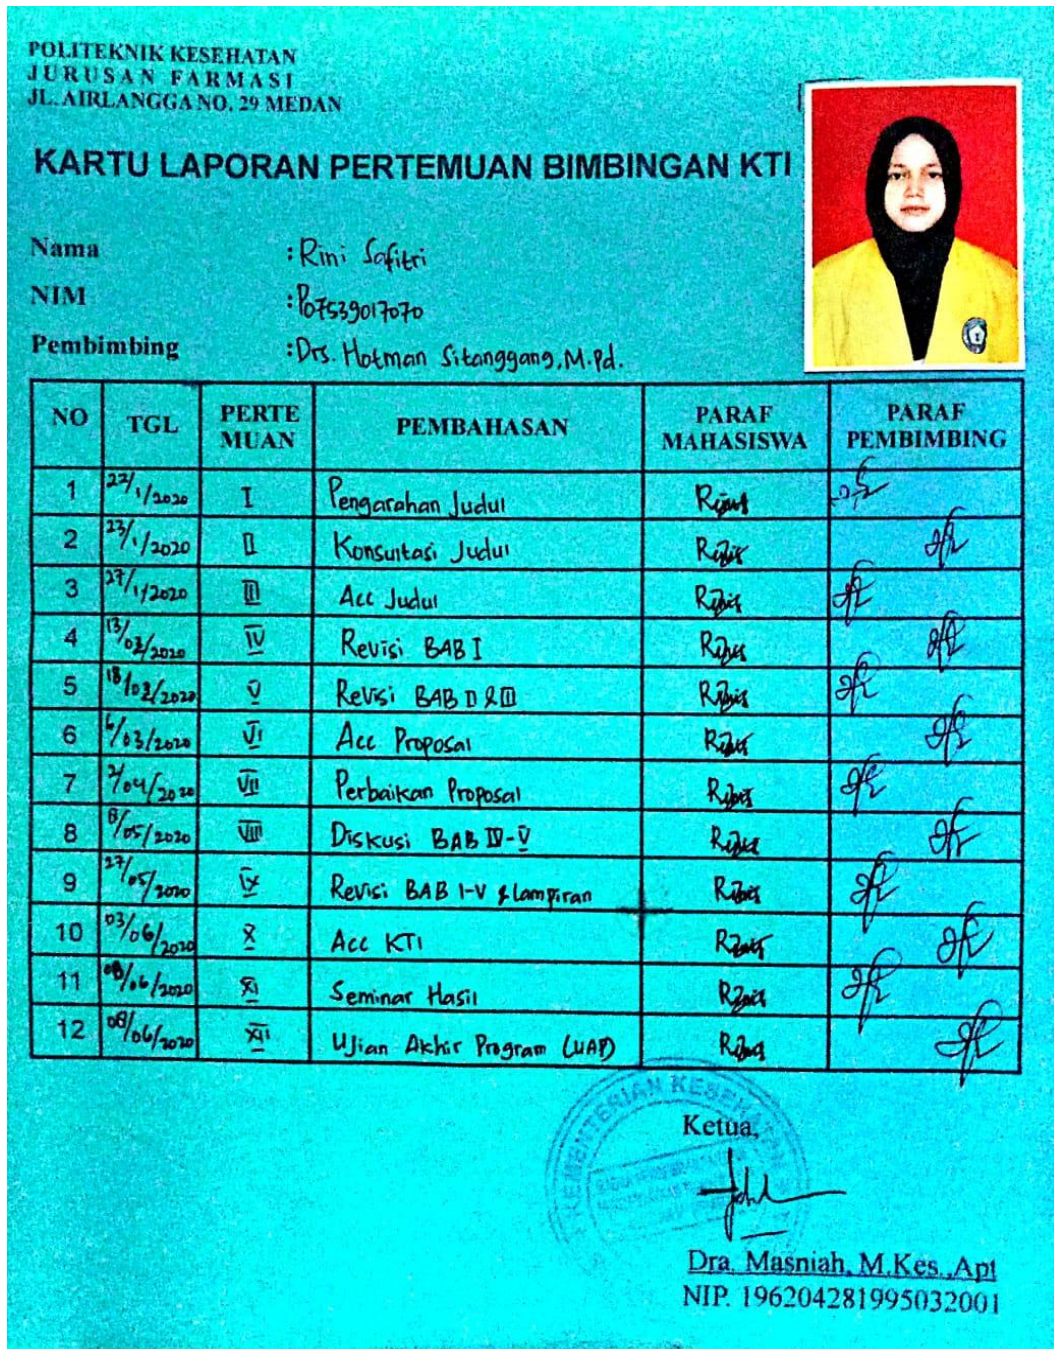 POLITEKNIK KESEHATAN
JURUSAN FARMASI
JL. AIRLANGGA NO. 29 MEDAN
KARTU LAPORAN PERTEMUAN BIMBINGAN KTI
Nama : Rini Safitri
NIM : P07539017070
Pembimbing : Drs. Hotman Sitanggang, M.Pd.
NO TGL PERTE MUAN PEMBAHASAN PARAF MAHASISWA PARAF PEMBIMBING
1 22/1/2020 I Pengarahan Judul
2 23/1/2020 II Konsultasi Judul
3 27/1/2020 III Acc Judul
4 13/02/2020 IV Revisi BAB I
5 18/02/2020 V Revisi BAB II & III
6 6/03/2020 VI Acc Proposal
7 2/04/2020 VII Perbaikan Proposal
8 8/05/2020 VIII Diskusi BAB IV-V
9 27/05/2020 IX Revisi BAB I-V & Lampiran
10 03/06/2020 X Acc KTI
11 08/06/2020 XI Seminar Hasil
12 08/06/2020 XII Ujian Akhir Program (UAP)
KEMENTERIAN KESEHATAN
Ketua,
Dra. Masniah, M.Kes., Apt
NIP. 196204281995032001